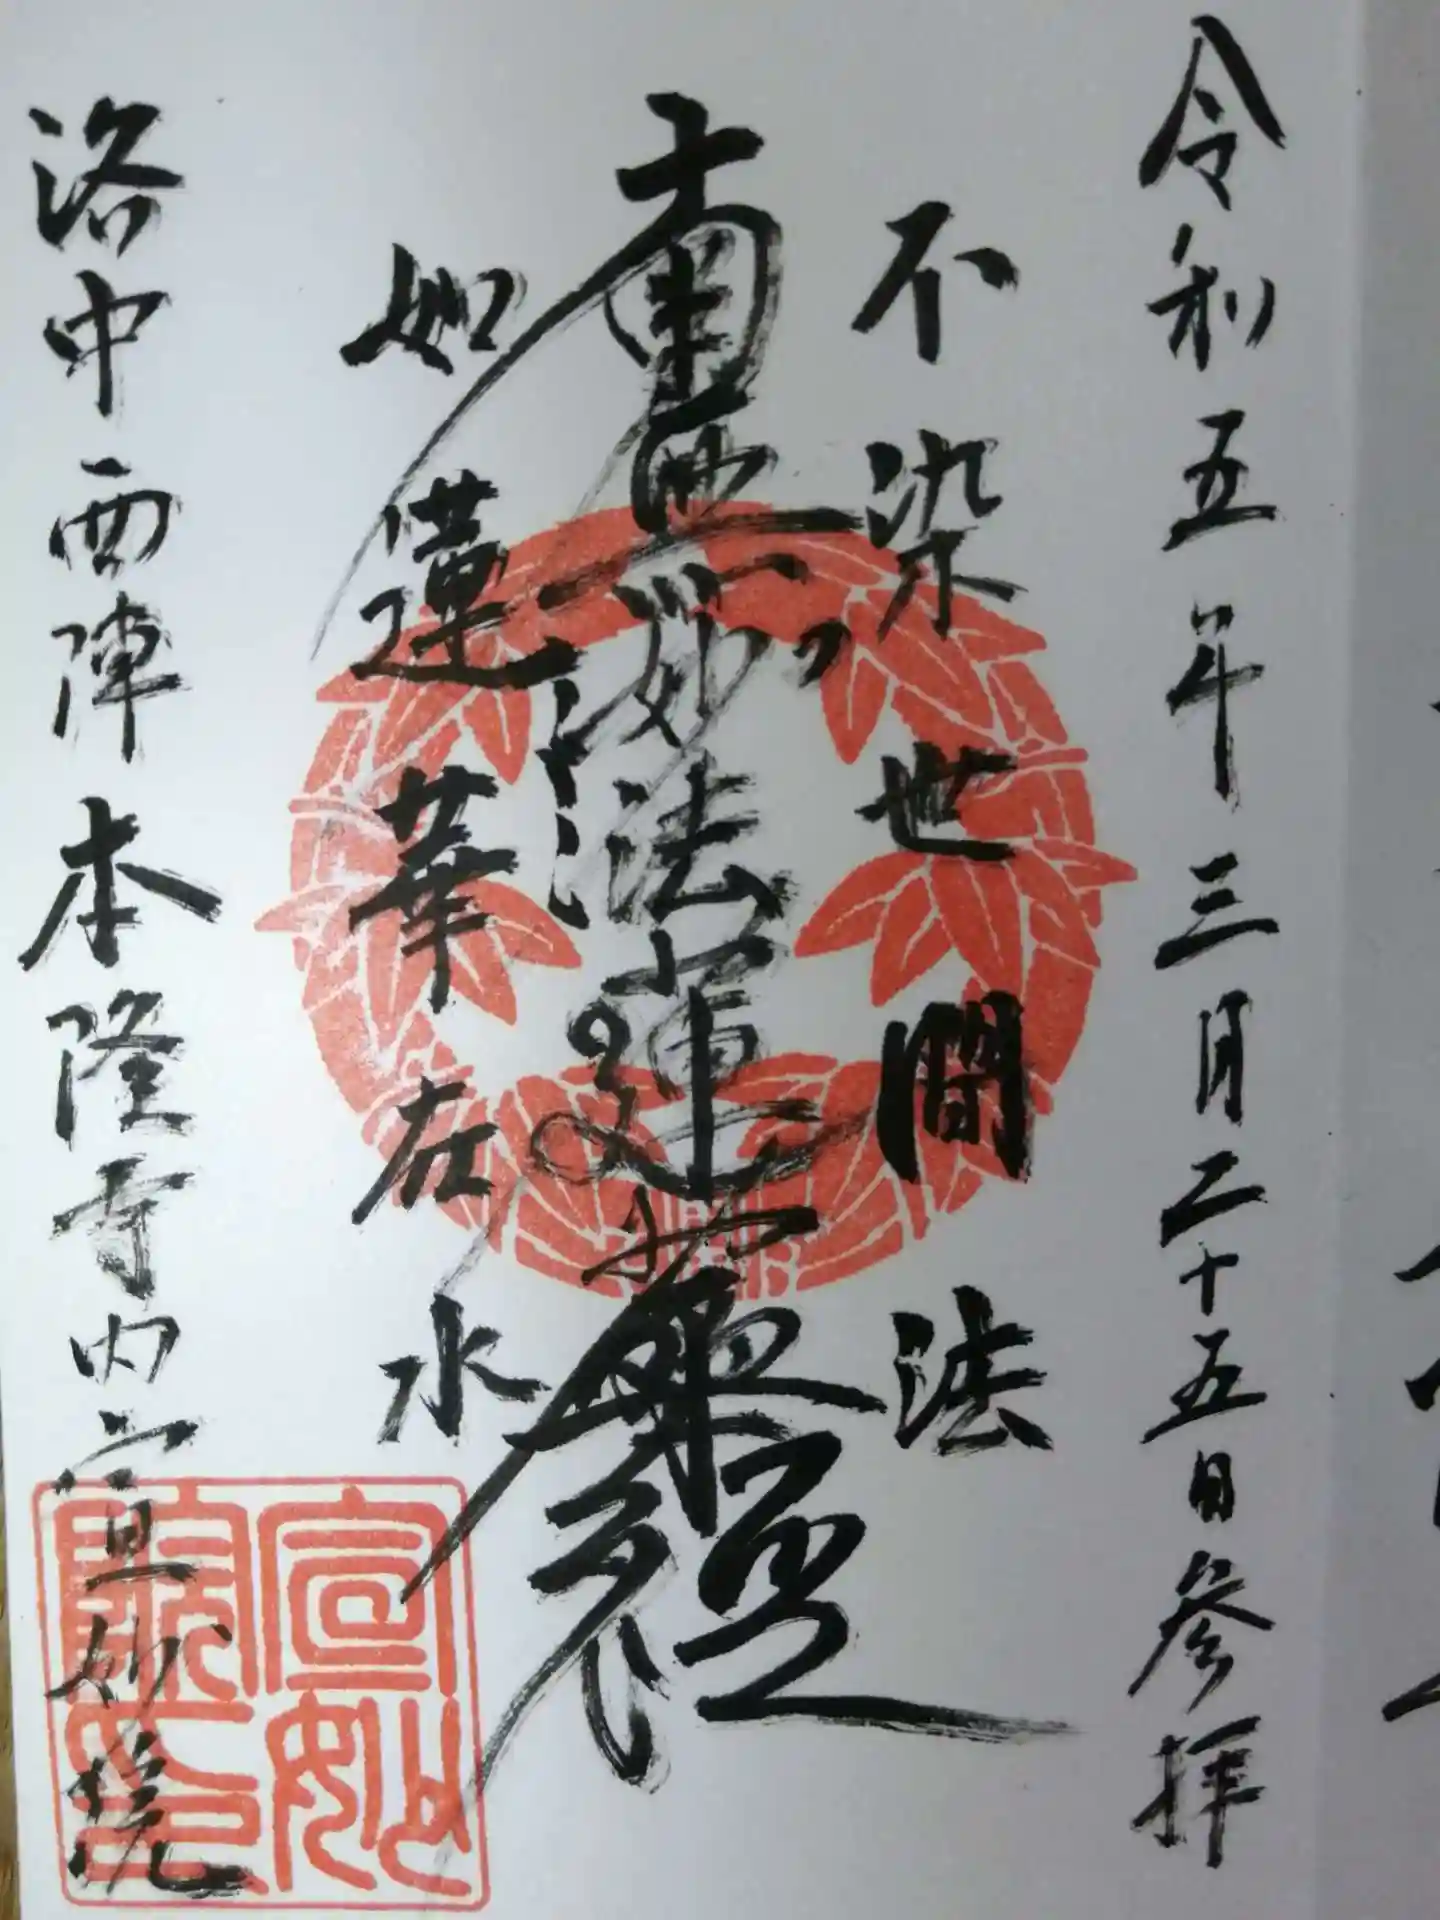 令和五年三月二十五日参拝
不染世間法
南無妙法蓮華経
如蓮華在水
洛中西陣本隆寺内宣妙院
宣妙
院印